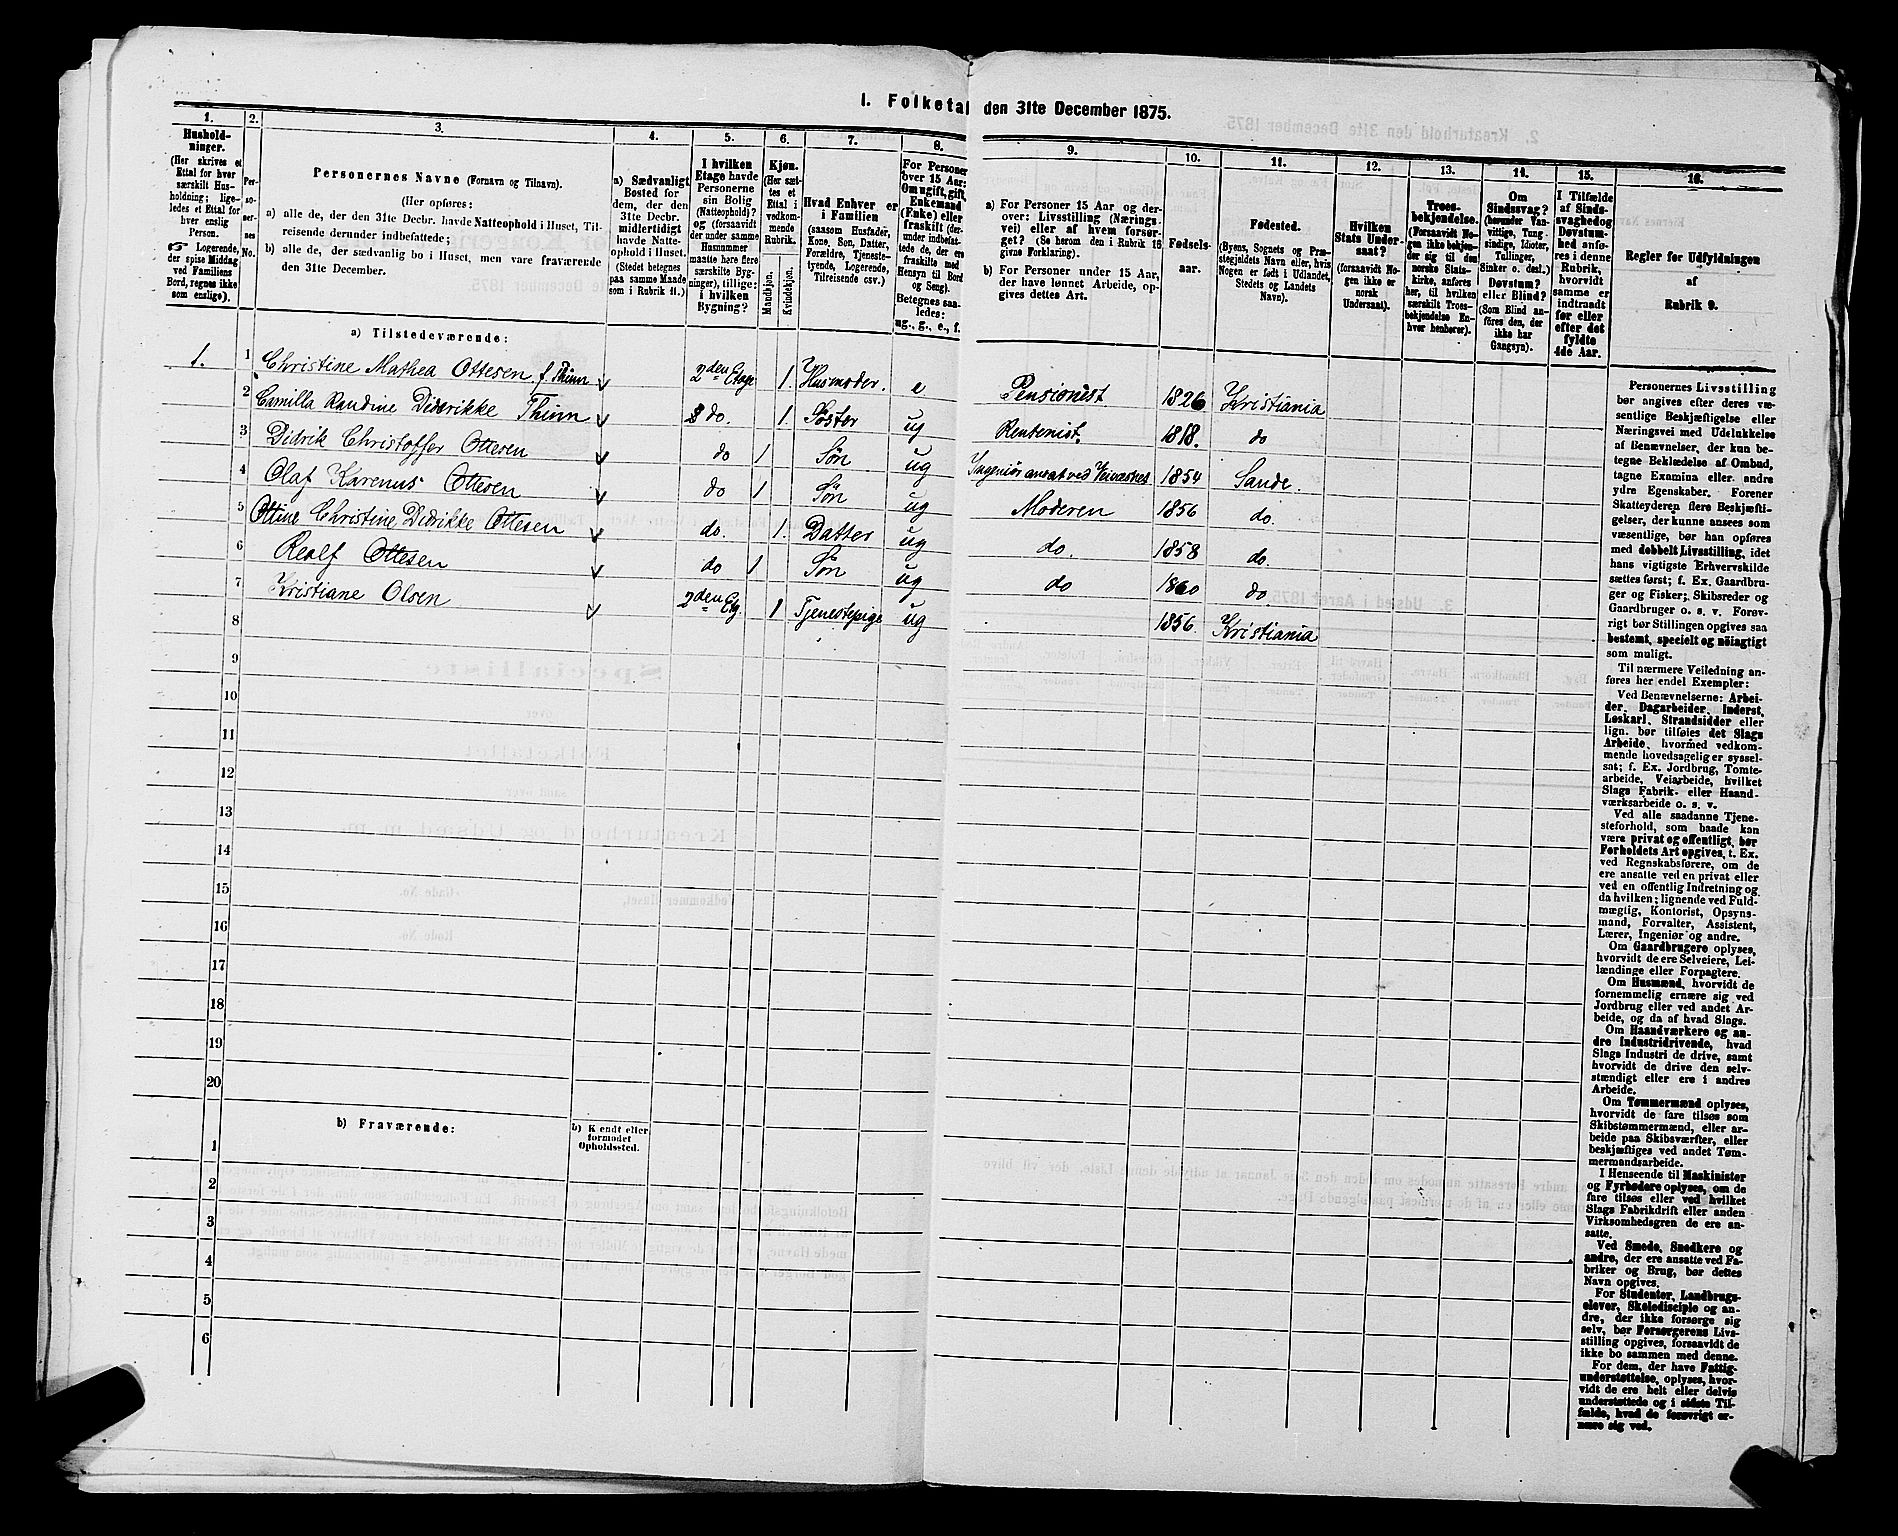 1. Folketal den 31te December 1875.
1. 2. 3. 4. 5. 6. 7. 8. 9. 10. 11. 12. 13. 14. 15. 16.
Hushold-
ninger.
(Her skrives et
Ettal for hver
særskilt Hus-
holdning; lige-
ledes et Ettal for
hver enslig
Person.
☞ Logerende,
der spise Middag
ved Familiens
Bord, regnes ikke
som enslige).
Per-
so-
ner-
nes
No.
Personernes Navne (Fornavn og Tilnavn).
(Her opføres:
a) alle de, der den 31te Decbr. havde Natteophold i Huset, Til-
reisende derunder indbefattede;
b) alle de, der sædvanlig bo i Huset, men vare fraværende
den 31te December.
a) Sædvanligt
Bosted for
dem, der den
31te Decbr.
midlertidigt
havde Natte-
ophold i Huset.
(Stedet betegnes
paa samme Maade
som i Rubrik 11.)
I hvilken
Etage havde
Personerne
sin Bolig
(Natteophold)?
og (forsaavidt
der under samme
Husnummer
maatte høre flere
særskilte Byg-
ninger), tillige:
i hvilken
Bygning?
Kjøn.
(Her sæt-
tes et
Ettal i
vedkom-
mende
Rubrik.
Mandkjøn.
Kvindekjøn.
Hvad Enhver er
i Familien
(saasom Husfader,
Kone, Søn, Datter,
Forældre, Tjeneste-
tyende, Logerende,
Tilreisende csv.)
For Personer
over 15 Aar:
Om ugift, gift,
Enkemand
(Enke) eller
fraskilt (der-
under indbefat-
tede de, der ere
fraskilte med
Hensyn til Bord
og Seng).
Betegnes saa-
ledes:
ug., g., e., f.
a) For Personer 15 Aar og der-
over: Livsstilling (Nærings-
vei) eller af hvem forsør-
get? (Se herom den i Rubrik 16
givne Forklaring).
b) For Personer under 15 Aar,
der have lønnet Arbeide, op-
gives dettes Art.
Fødsels-
aar.
Fødested.
(Byens, Sognets og Præ-
stegjeldets Navn eller, hvis
Nogen er født i Udlandet,
Stedets og Landets
Navn).
Hvilken
Stats Under-
saat?
(forsaavidt No-
gen ikke er
norsk
Undersaat).
Troes-
bekjendelse.
(Forsaavidt No-
gen ikke bekjen-
der sig til den
norske Stats-
kirke, anføres
her, til hvilken
særskilt Troes-
bekjendelse En-
hver henhører).
Om
Sindssvag?
(herunder Van-
vittige, Tung-
sindige, Idioter,
Tullinger,
Sinker o. desl.)
Døvstum?
eller Blind?
(Som Blind an-
føres den, der
ikke har
Gangsyn).
I Tilfælde
af Sinds-
svaghed og
Døvstum-
hed anfø-
res i denne
Rubrik,
hvorvidt
samme er
indtraadt
før eller
efter det
fyldte
4de Aar.
Regler for Udfyldningen
af
Rubrik 9.
a) Tilstedeværende:
1. 1 Christine Mathea Ottesen f. Thinn 2den Etage 1. Husmoder. e Pensionist 1826 Kristiania
2 Camilla Randine Didrikke Thinn do. 1. Søster ug Rentenist. 1818. do
3 Didrik Christoffer Ottesen do 1 Søn ug Ingeniør ansat ved 1854 Sande.
4 Olaf Karenus Ottesen do 1 Søn ug Moderen 1856 do.
5 Ottine Christine Didrikke Ottesen do. 1. Datter ug do. 1858 do.
6 Reolf Ottesen do 1 Søn ug do 1860 do.
7 Kristiane Olsen 2den Etg 1 Tjenestepige ug 1856. Kristiania
8
9
10
11
12
13
14
15
16
17
18
19
20
b) Fraværende:
b) Kjendt eller
formodet
Opholdssted.
1
2
3
4
5
6
Personernes Livsstilling
bør angives efter deres væ-
sentlige Beskjæftigelse eller
Næringsvei med Udelukkelse
af Benævnelser, der kun be-
tegne Beklædelse af Ombud,
tagne Examina eller andre
ydre Egenskaber. Forener
Skatteyderen flere Beskjæfti-
gelser, der kunne ansees som
væsentlige, bør han opføres
med dobbelt Livsstilling, idet
hans vigtigste Erhvervskilde
sættes først; f. Ex. Gaardbru-
ger og Fisker; Skibsreder og
Gaardbruger o. s. v. Forøv-
rigt bør Stillingen opgives saa
bestemt, specielt og nøiagtigt
som muligt.
Til nærmere Veiledning an-
føres her endel Exempler:
Ved Benævnelserne: Arbei-
der, Dagarbeider, Inderst,
Løskarl, Strandsidder eller
lign. bør tilføies det Slags
Arbeide, hvormed vedkom-
mende hovedsagelig er syssel-
sat; f. Ex. Jordbrug, Tomte-
arbeide, Veiarbeide, hvilket
Slags Fabrik- eller Haand-
værksarbeide o. s. v.
Ved alle saadanne Tjene-
steforhold, som baade kan
være privat og offentligt, bør
Forholdets Art opgives, t. Ex.
ved Regnskabsførere, om de
ere ansatte ved en privat eller
ved en offentlig Indretning og
da hvilken; lignende ved Fuld-
mægtig, Kontorist, Opsyns-
mand, Forvalter, Assistent,
Lærer, Ingeniør og andre.
Om Gaardbrugere oplyses,
hvorvidt de ere Selveiere, Lei-
lændinge eller Forpagtere.
Om Husmænd, hvorvidt de
fornemmelig ernære sig ved
Jordbrug eller ved andet Ar-
beide, og da af hvad Slags.
Om Haandværkere og an-
dre Industridrivende, hvad
Slags Industri de drive, samt
hvorvidt de drive den selv-
stændigt eller ere i andres
Arbeide.
Om Tømmermænd oplyses,
hvorvidt de fare tilsøs som
Skibstømmermænd, eller ar-
beide paa Skibsværfter, eller
beskjæftiges ved andet Tøm-
mermandsarbeide.
I Henseende til Maskinister
og Fyrbødere oplyses, om de
fare tilsøs eller ved hvilket
Slags Fabrikdrift eller anden
Virksomhedsgren de ere an-
satte.
Ved Smede, Snedkere og
andre, der ere ansatte ved Fa-
briker og Brug, bør dettes
Navn opgives.
For Studenter, Landbrugs-
elever, Skoledisciple og an-
dre, der ikke forsørge sig
selv, bør Forsørgerens Livs-
stilling opgives, forsaavidt de
ikke bo sammen med denne.
For dem, der have Fattig-
understøttelse, oplyses, hvor-
vidt de ere helt eller delvis
understøttede og i sidste Til-
fælde, hvad de forøvrigt er-
nære sig ved.